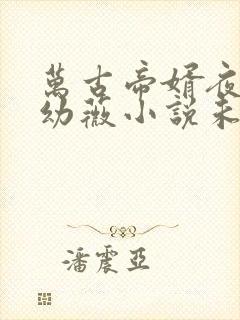 萬古帝婿夜
幼薇小說未
潘震亞